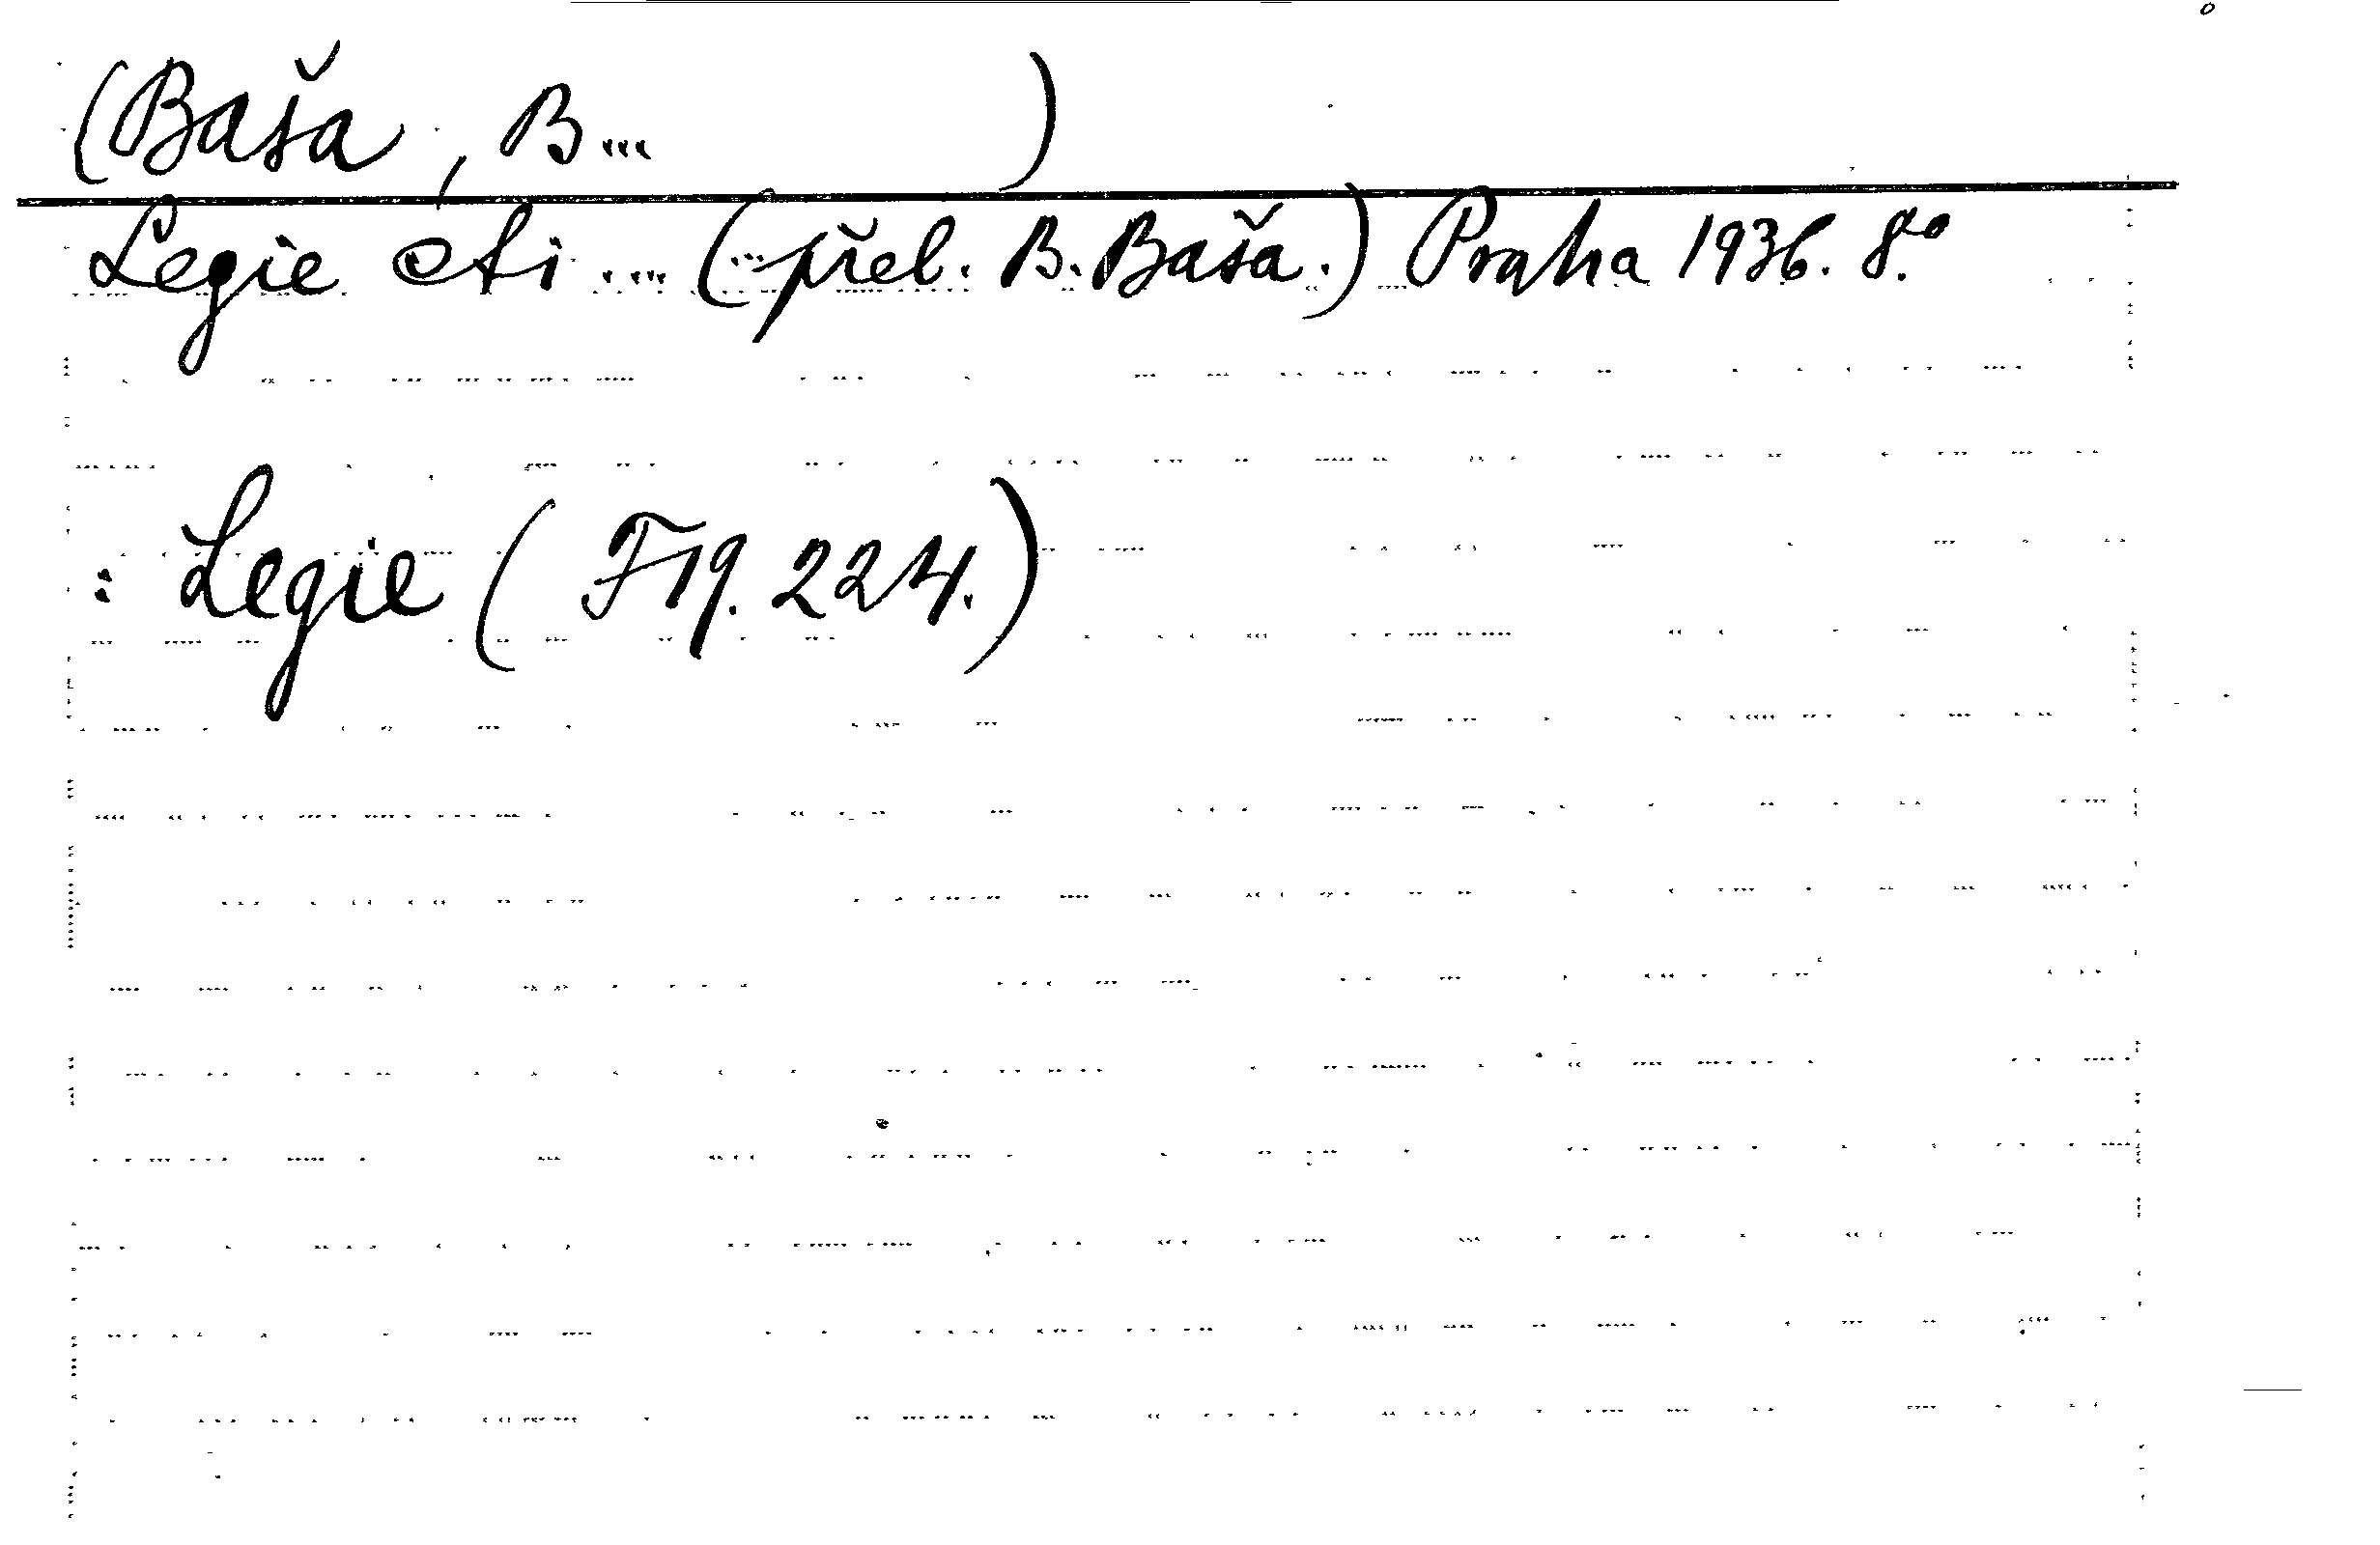 (Baša, B... )
Legie cti .... (...přel. B. Baša.) Praha 1936. 8.°
: Legie (F19. 224.)